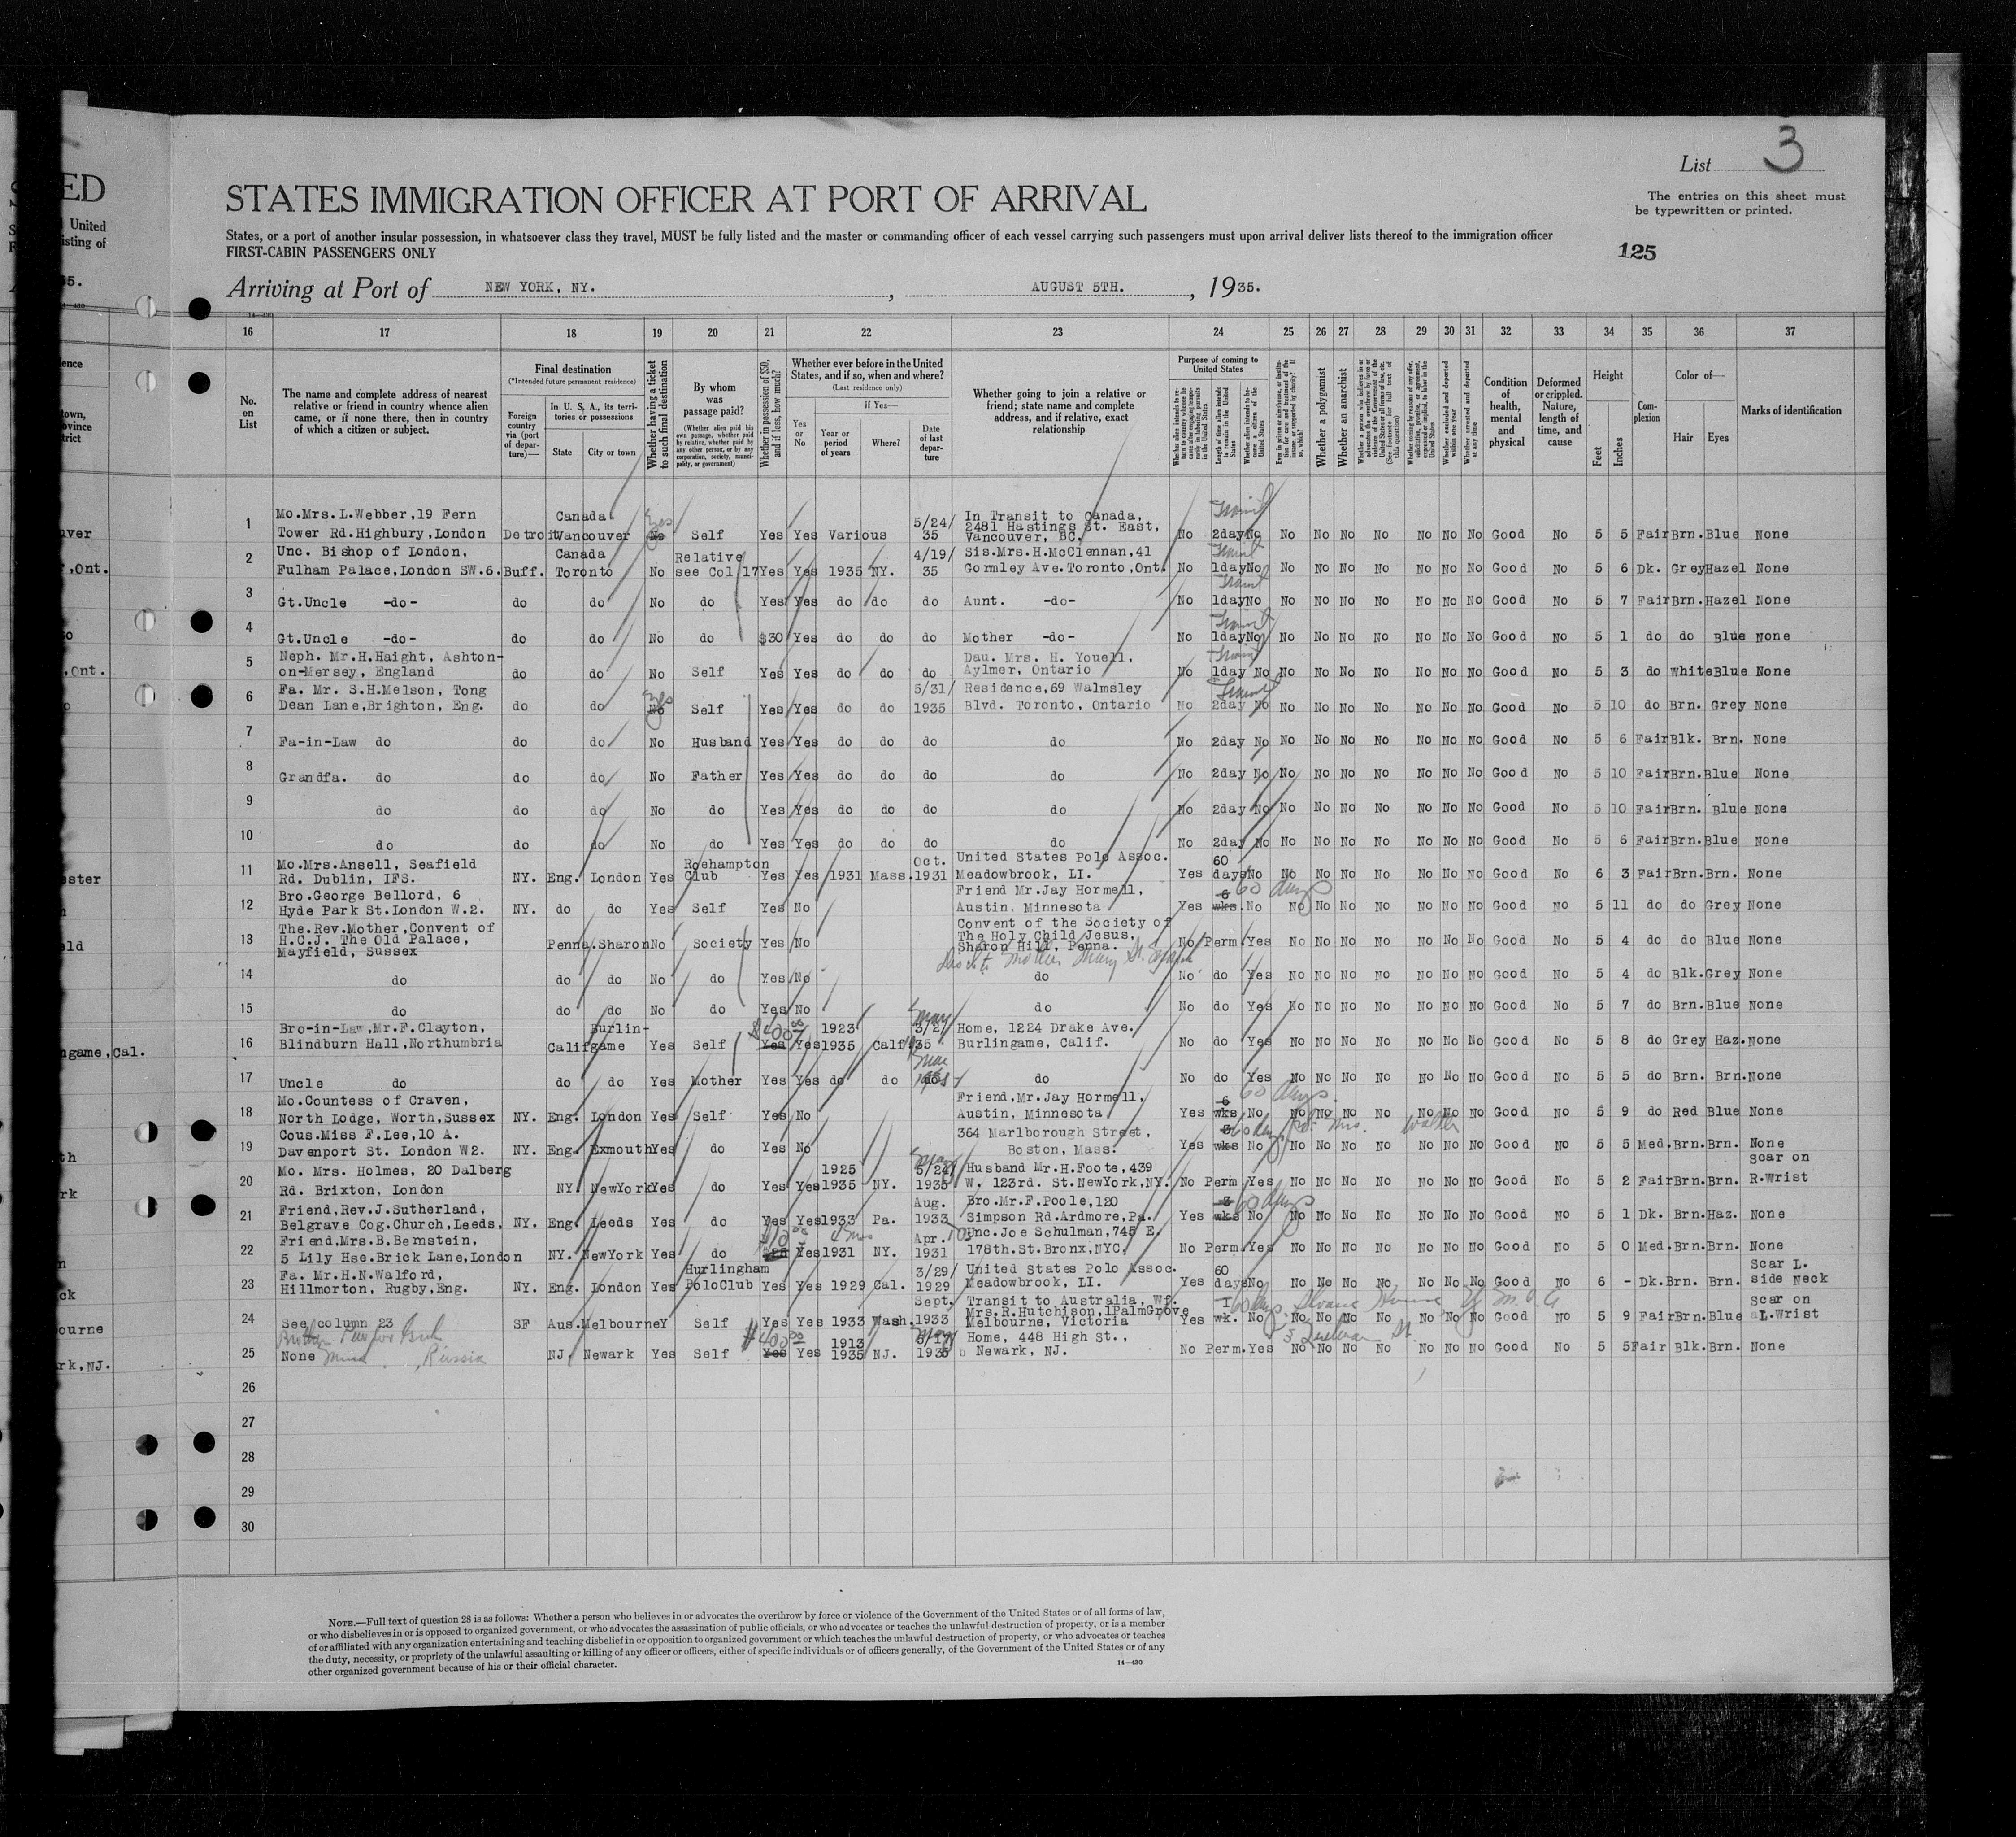 List 3
STATES IMMIGRATION OFFICER AT PORT OF ARRIVAL
The entries on this sheet must
be typewritten or printed.
States, or a port of another insular possession, in whatsoever class they travel, MUST be fully listed and the master or commanding officer of each vessel carrying such passengers must upon arrival deliver lists thereof to the immigration officer
FIRST-CABIN PASSENGERS ONLY
125
Arriving at Port of NEW YORK, NY. , AUGUST 5TH. , 1935.
16 17 18 19 20 21 22 23 24 25 26 27 28 29 30 31 32 33 34 35 36 37
No. on List
The name and complete address of nearest relative or friend in country whence alien came, or if none there, then in country of which a citizen or subject.
Final destination
(*Intended future permanent residence)
Foreign country via (port of departure)—
In U. S. A., its territories or possessions
State
City or town
Whether having a ticket to such final destination
By whom was passage paid?
(Whether alien paid his own passage, whether paid by relative, whether paid by any other person, or by any corporation, society, municipality, or government)
Whether in possession of $50, and if less, how much?
Whether ever before in the United States, and if so, when and where?
(Last residence only)
Yes or No
If Yes—
Year or period of years
Where?
Date of last departure
Whether going to join a relative or friend; state name and complete address, and if relative, exact relationship
Purpose of coming to United States
Whether a polygamist
Whether an anarchist
Condition of health, mental and physical
Deformed or crippled. Nature, length of time, and cause
Height
Feet
Inches
Complexion
Color of—
Hair
Eyes
Marks of identification
1 Mo.Mrs.L.Webber,19 Fern Tower Rd.Highbury,London Detroit Canada Vancouver No Yes Self Yes Yes Various 5/24/35 In Transit to Canada, 2481 Hastings St. East, Vancouver, BC. No Transit 2day No No No No No No No No Good No 5 5 Fair Brn. Blue None
2 Unc. Bishop of London, Fulham Palace,London SW.6. Buff. Canada Toronto No Relative see Col 17 Yes Yes 1935 NY. 4/19/35 Sis.Mrs.H.McClennan,41 Gormley Ave.Toronto,Ont. No Transit 1day No No No No No No No No Good No 5 6 Dk. Grey Hazel None
3 Gt.Uncle -do- do do No do Yes Yes do do do Aunt. -do- No Transit 1day No No No No No No No No Good No 5 7 Fair Brn. Hazel None
4 Gt.Uncle -do- do do No do $30 Yes do do do Mother -do- No Transit 1day No No No No No No No No Good No 5 1 do do Blue None
5 Neph. Mr.H.Haight, Ashton-on-Mersey, England do do No Self Yes Yes do do do Dau. Mrs. H. Youell, Aylmer, Ontario No Transit 1day No No No No No No No No Good No 5 3 do White Blue None
6 Fa. Mr. S.H.Melson, Tong Dean Lane,Brighton, Eng. do do No Yes Self Yes Yes do do 5/31/1935 Residence,69 Walmsley Blvd. Toronto, Ontario No Transit 2day No No No No No No No No Good No 5 10 do Brn. Grey None
7 Fa-in-Law do do do No Husband Yes Yes do do do do No 2day No No No No No No No No Good No 5 6 Fair Blk. Brn. None
8 Grandfa. do do do No Father Yes Yes do do do do No 2day No No No No No No No No Good No 5 10 Fair Brn. Blue None
9 do do do No do Yes Yes do do do do No 2day No No No No No No No No Good No 5 10 Fair Brn. Blue None
10 do do do No do Yes Yes do do do do No 2day No No No No No No No No Good No 5 6 Fair Brn. Blue None
11 Mo.Mrs.Ansell, Seafield Rd. Dublin, IFS. NY. Eng. London Yes Roehampton Club Yes Yes 1931 Mass. Oct. 1931 United States Polo Assoc. Meadowbrook, LI. Yes 60 days No No No No No No No No Good No 6 3 Fair Brn. Brn. None
12 Bro.George Bellord, 6 Hyde Park St.London W.2. NY. do do Yes Self Yes No Friend Mr.Jay Hormell, Austin. Minnesota Yes 6 wks. 60 days No No No No No No No No Good No 5 11 do do Grey None
13 The.Rev.Mother,Convent of H.C.J. The Old Palace, Mayfield, Sussex Penna. Sharon No Society Yes No Convent of the Society of The Holy Child Jesus, Sharon Hill, Penna. No Perm. Yes No No No No No No No Good No 5 4 do do Blue None
14 do do do No do Yes No do No do Yes No No No No No No No Good No 5 4 do Blk. Grey None
15 do do do No do Yes No do No do Yes No No No No No No No Good No 5 7 do Brn. Blue None
16 Bro-in-Law,Mr.F.Clayton, Blindburn Hall,Northumbria Calif Burlingame Yes Self Yes $400 Yes 1923 1935 Calf May 3/2/35 Home, 1224 Drake Ave. Burlingame, Calif. No do Yes No No No No No No No Good No 5 8 do Grey Haz. none
17 Uncle do do do Yes Mother Yes Yes do do do do No do Yes No No No No No No No Good No 5 5 do Brn. Brn. None
18 Mo.Countess of Craven, North Lodge, Worth,Sussex NY. Eng. London Yes Self Yes No Friend,Mr.Jay Hormell, Austin, Minnesota Yes 6 wks 60 days No No No No No No No No Good No 5 9 do Red Blue None
19 Cous.Miss F.Lee,10 A. Davenport St. London W2. NY. Eng. Exmouth Yes do Yes No 364 Marlborough Street, Boston, Mass. Yes 3 wks 60 days No No No No No No No No Good No 5 5 Med. Brn. Brn. None
20 Mo. Mrs. Holmes, 20 Dalberg Rd. Brixton, London NY. NewYork Yes do Yes Yes 1925 1935 NY. May 5/24/1935 Husband Mr.H.Foote,439 W. 123rd. St.NewYork,NY. No Perm. Yes No No No No No No No Good No 5 2 Fair Brn. Brn. scar on R.Wrist
21 Friend,Rev.J.Sutherland, Belgrave Cog.Church,Leeds, NY. Eng. Leeds Yes do Yes Yes 1933 Pa. Aug. 1933 Bro.Mr.F.Poole,120 Simpson Rd.Ardmore,Pa. Yes 3 wks 60 days No No No No No No No No Good No 5 1 Dk. Brn. Haz. None
22 Friend,Mrs.B.Bernstein, 5 Lily Hse.Brick Lane,London NY. NewYork Yes do Yes 1931 NY. Apr. 1931 Unc.Joe Schulman,745 E. 178th.St.Bronx,NYC. No Perm. Yes No No No No No No No Good No 5 0 Med. Brn. Brn. None
23 Fa. Mr.H.N.Walford, Hillmorton, Rugby,Eng. NY. Eng. London Yes Hurlingham PoloClub Yes Yes 1929 Cal. 3/29/1929 United States Polo Assoc. Meadowbrook, LI. Yes 60 days No No No No No No No No Good No 6 - Dk. Brn. Brn. Scar L. side Neck
24 See column 23 SF Aus. Melbourne Y Self Yes Yes 1933 Wash. Sept. 1933 Transit to Australia, Wf. Mrs.R.Hutchison,1PalmGrove Melbourne, Victoria Yes 1 wk. 60 days Sloane House Y M. C A No No No No No No No No Good No 5 9 Fair Brn. Blue scar on L.Wrist
25 None Brother Russia NJ. Newark Yes Self Yes $400 Yes 1913 1935 NJ. 1935 Home, 448 High St., Newark, NJ. No Perm. Yes No No No No No No No Good No 5 5 Fair Blk. Brn. None
26
27
28
29
30
NOTE.—Full text of question 28 is as follows: Whether a person who believes in or advocates the overthrow by force or violence of the Government of the United States or of all forms of law,
or who disbelieves in or is opposed to organized government, or who advocates the assassination of public officials, or who advocates or teaches the unlawful destruction of property, or is a member
of or affiliated with any organization entertaining and teaching disbelief in or opposition to organized government or which teaches the unlawful destruction of property, or who advocates or teaches
the duty, necessity, or propriety of the unlawful assaulting or killing of any officer or officers, either of specific individuals or of officers generally, of the Government of the United States or of any
other organized government because of his or their official character.
14—430